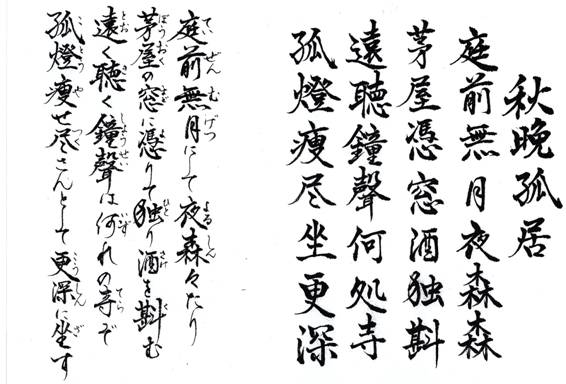 秋晩孤居
庭前無月夜森森
茅屋憑窓酒独斟
遠聴鐘聲何処寺
孤燈痩尽坐更深
庭前無月にして夜森々たり
茅屋の窓に憑りて独り酒を斟む
遠く聴く鐘聲は何れの寺ぞ
孤燈痩せ尽さんとして更深に坐す